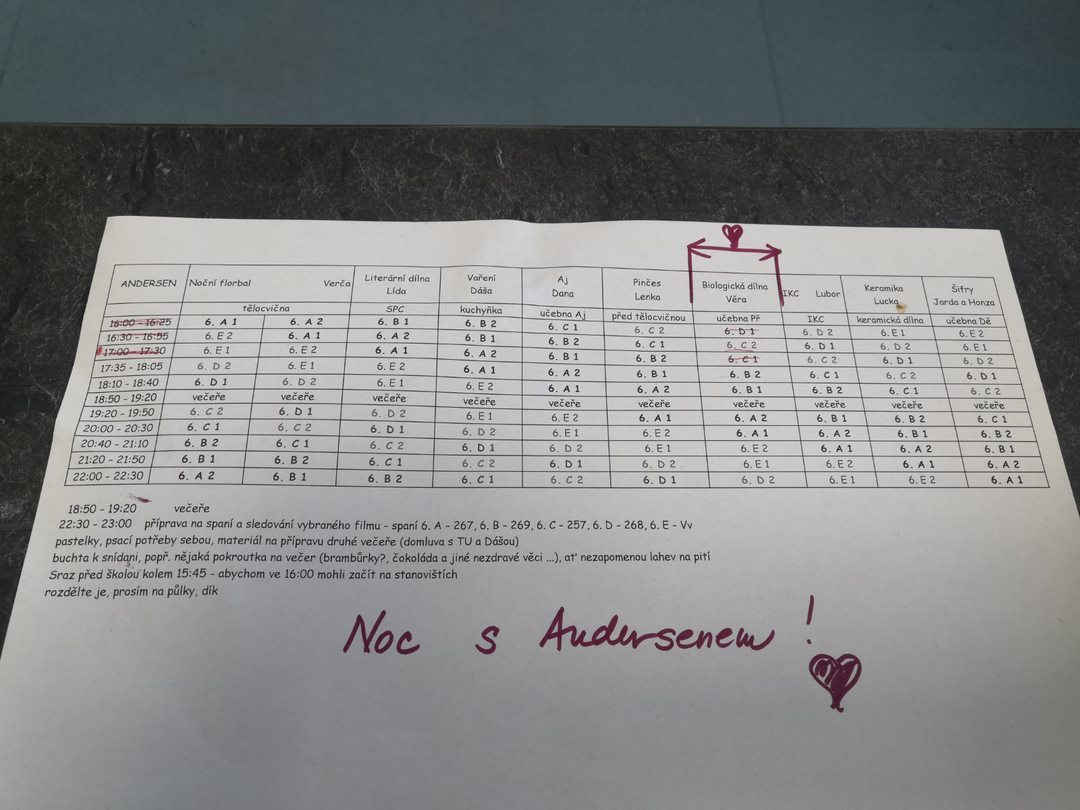 ANDERSEN Noční florbal Verča Literární dílna Lída Vaření Dáša Aj Dana Pinčes Lenka Biologická dílna Věra IKC Lubor Keramika Lucka Šifry Jarda a Honza
tělocvična SPC kuchyňka učebna Aj před tělocvičnou učebna Př IKC keramická dílna učebna Dě
16:00 - 16:25 6. A 1 6. A 2 6. B 1 6. B 2 6. C 1 6. C 2 6. D 1 6. D 2 6. E 1 6. E 2
16:30 - 16:55 6. E 2 6. A 1 6. A 2 6. B 1 6. B 2 6. C 1 6. C 2 6. D 1 6. D 2 6. E 1
17:00 - 17:30 6. E 1 6. E 2 6. A 1 6. A 2 6. B 1 6. B 2 6. C 1 6. C 2 6. D 1 6. D 2
17:35 - 18:05 6. D 2 6. E 1 6. E 2 6. A 1 6. A 2 6. B 1 6. B 2 6. C 1 6. C 2 6. D 1
18:10 - 18:40 6. D 1 6. D 2 6. E 1 6. E 2 6. A 1 6. A 2 6. B 1 6. B 2 6. C 1 6. C 2
18:50 - 19:20 večeře večeře večeře večeře večeře večeře večeře večeře večeře večeře
19:20 - 19:50 6. C 2 6. D 1 6. D 2 6. E 1 6. E 2 6. A 1 6. A 2 6. B 1 6. B 2 6. C 1
20:00 - 20:30 6. C 1 6. C 2 6. D 1 6. D 2 6. E 1 6. E 2 6. A 1 6. A 2 6. B 1 6. B 2
20:40 - 21:10 6. B 2 6. C 1 6. C 2 6. D 1 6. D 2 6. E 1 6. E 2 6. A 1 6. A 2 6. B 1
21:20 - 21:50 6. B 1 6. B 2 6. C 1 6. C 2 6. D 1 6. D 2 6. E 1 6. E 2 6. A 1 6. A 2
22:00 - 22:30 6. A 2 6. B 1 6. B 2 6. C 1 6. C 2 6. D 1 6. D 2 6. E 1 6. E 2 6. A 1
18:50 - 19:20 večeře
22:30 - 23:00 příprava na spaní a sledování vybraného filmu - spaní 6. A - 267, 6. B - 269, 6. C - 257, 6. D - 268, 6. E - Vv
pastelky, psací potřeby sebou, materiál na přípravu druhé večeře (domluva s TU a Dášou)
buchta k snídani, popř. nějaká pokroutka na večer (brambůrky?, čokoláda a jiné nezdravé věci ...), ať nezapomenou lahev na pití
Sraz před školou kolem 15:45 - abychom ve 16:00 mohli začít na stanovištích
rozdělte je, prosím na půlky, dík
Noc s Andersenem !